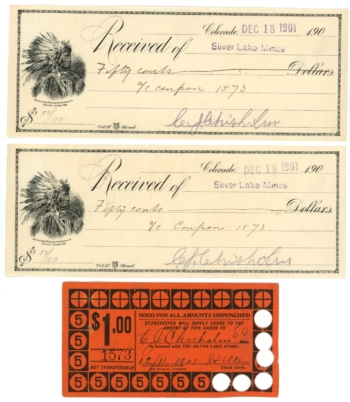 Colorado, DEC 18 1901 190
Received of Silver Lake Mines
Fifty cents Dollars
a/c coupon 1573
$ 50/100
C J Chisholm
Colorado, DEC 18 1901 190
Received of Silver Lake Mines
Fifty cents Dollars
a/c Coupon 1573
$ 50/100
C J Chisholm
GOOD FOR ALL AMOUNTS UNPUNCHED
STOREKEEPER WILL SUPPLY GOODS TO THE
AMOUNT OF THIS ORDER TO
$1.00
1573
NOT TRANSFERABLE
5 5 5 5 5 5 5 5 5